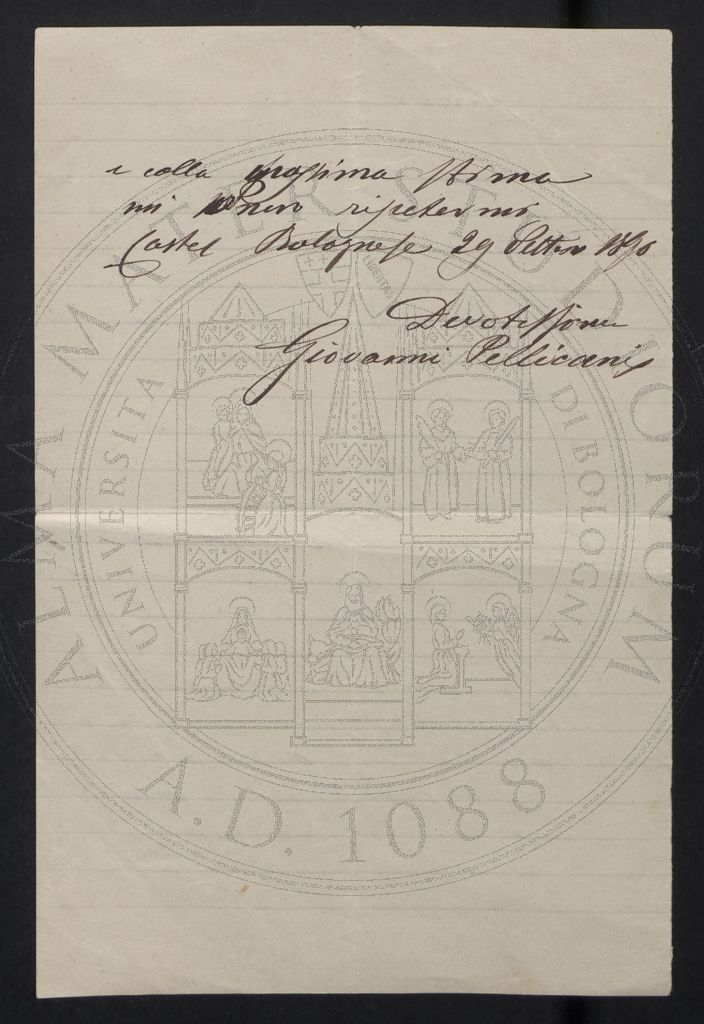 e colla massima stima
mi ripetermi
Castel Bolognese 29 Settem 1890
Devotissimo
Giovanni Pellicani
ALMA MATER STUDIORUM
UNIVERSITA DI BOLOGNA
A.D. 1088